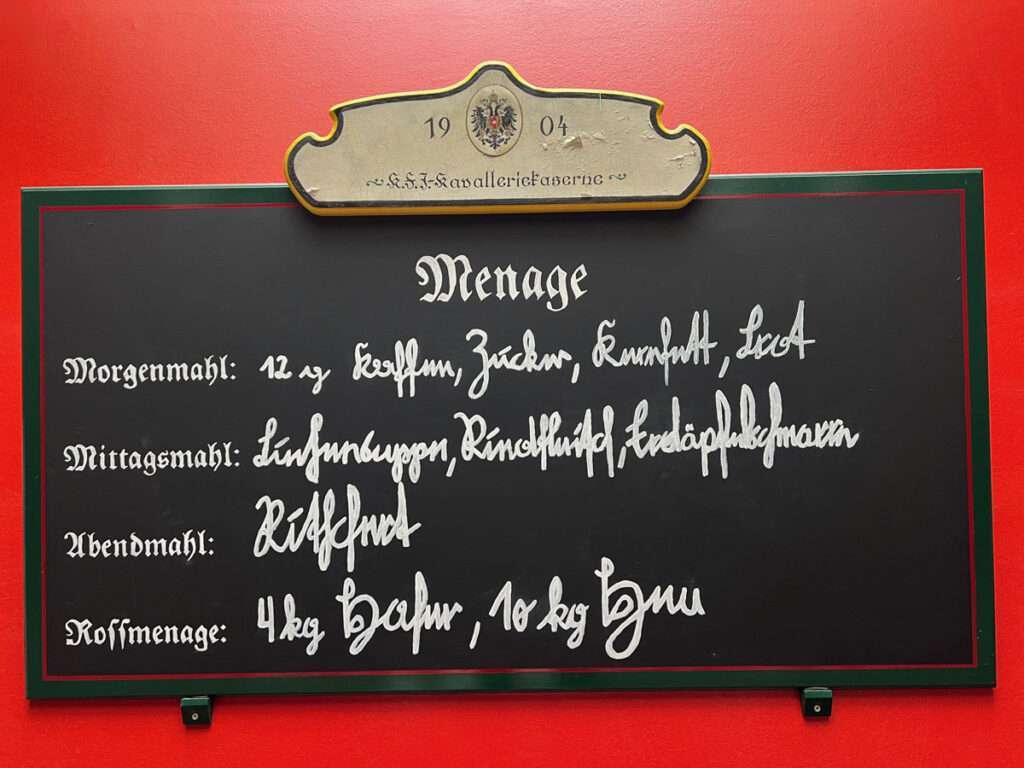 19 04
K.F.J.-Kavalleriekaserne
Menage
Morgenmahl: 12 g Kaffee, Zucker, Kunfett, Brot
Mittagsmahl: Linsensuppe, Rindfleisch, Erdäpfelschmarrn
Abendmahl: Ritschert
Rossmenage: 4 kg Hafer, 10 kg Heu